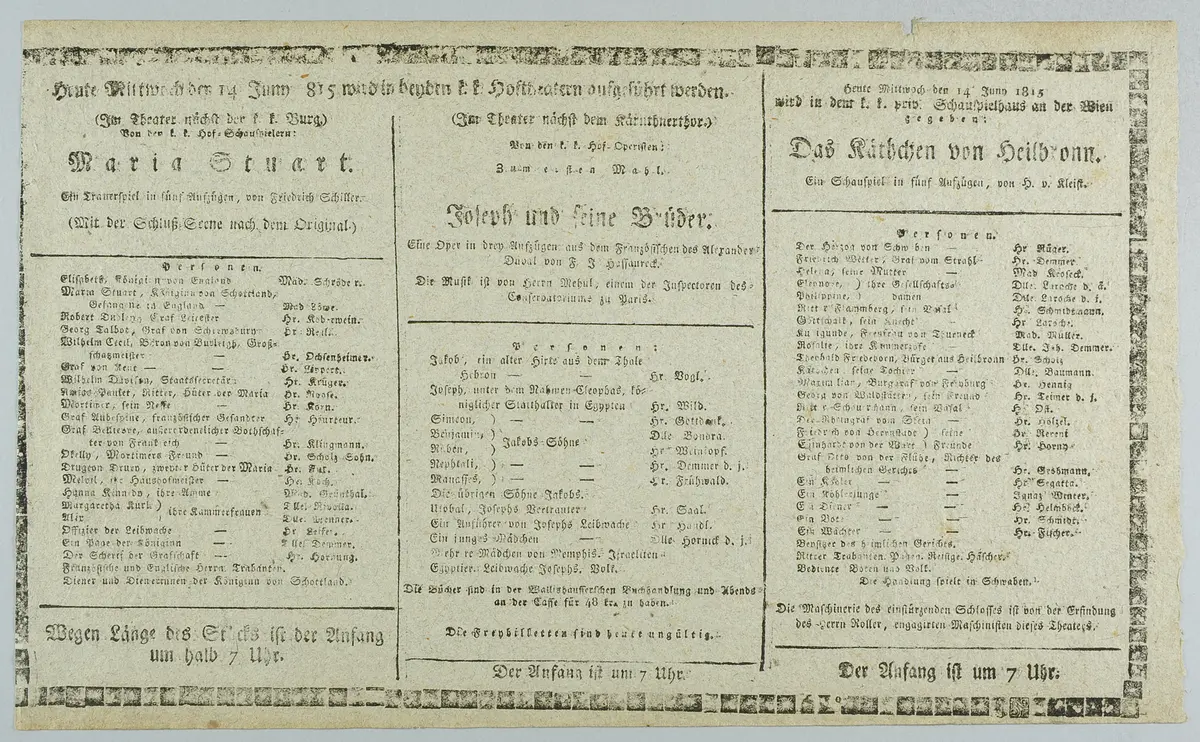 Heute Mittwoch den 14 Juny 1815 wird in beyden k. k. Hoftheatern aufgeführt werden.
(Im Theater nächst der k. k. Burg.)
Von den k. k. Hof-Schauspielern:
Maria Stuart.
Ein Trauerspiel in fünf Aufzügen, von Friedrich Schiller.
(Mit der Schluß-Scene nach dem Original.)
Personen.
Elisabeth, Königinn von England Mad. Schröder.
Maria Stuart, Königinn von Schottland,
Gefangene in England — Mad. Löwe.
Robert Dudley, Graf Leicester Hr. Koberwein.
Georg Talbot, Graf von Schrewsbury Hr. Reil.
Wilhelm Cecil, Baron von Burleigh, Groß-
schatzmeister — Hr. Ochsenheimer.
Graf von Kent — — Hr. Lippert.
Wilhelm Davison, Staatssecretär Hr. Krüger.
Amias Paulet, Ritter, Hüter der Maria Hr. Roose.
Mortimer, sein Neffe Hr. Korn.
Graf Aubespine, französischer Gesandter Hr.
Graf Bellievre, außerordentlicher Bothschaf-
ter von Frankreich — Hr. Klingmann.
Okelly, Mortimers Freund — Hr. Scholz Sohn.
Drugeon Drury, zweyter Hüter der Maria Hr.
Melvil, ihr Haushofmeister — Hr. Koch.
Hanna Kennedy, ihre Amme Mad. Grünthal.
Margaretha Kurl ) ihre Kammerfrauen Dlle.
Alix Dlle.
Offizier der Leibwache — Hr. Leifer.
Ein Page der Königinn — Dlle. Demmer.
Der Scherif der Grafschaft — Hr. Hornung.
Französische und Englische Herrn Trabanten.
Diener und Dienerinnen der Königinn von Schottland.
Wegen Länge des Stücks ist der Anfang
um halb 7 Uhr.
(Im Theater nächst dem Kärnthnerthor.)
Von den k. k. Hof-Operisten:
Zum ersten Mahl.
Joseph und seine Brüder.
Eine Oper in drey Aufzügen aus dem Französischen des Alexander
Duval von F. J. Hassaureck.
Die Musik ist von Herrn Mehul, einem der Inspectoren des
Conservatoriums zu Paris.
Personen:
Jakob, ein alter Hirte aus dem Thale
Hebron — — Hr. Vogl.
Joseph, unter dem Nahmen Cleophas, kö-
niglicher Statthalter in Egypten Hr. Wild.
Simeon, ) — — Hr. Gottdank.
Benjamin, ) Jakobs Söhne Dlle Bondra.
Ruben, ) Hr Weinkopf.
Nephtali, ) — — Hr. Demmer d. j.
Manasses, ) — — Hr. Frühwald.
Die übrigen Söhne Jakobs.
Utobal, Josephs Vertrauter Hr. Saal.
Ein Anführer von Josephs Leibwache Hr Handl.
Ein junges Mädchen — Dlle Hornick d. j.
Mehrere Mädchen von Memphis. Israeliten
Egyptier Leibwache Josephs. Volk.
Die Bücher sind in der Wallishausserschen Buchhandlung und Abends
an der Casse für 48 kr. zu haben.
Die Freybilletten sind heute ungültig.
Der Anfang ist um 7 Uhr.
Heute Mittwoch den 14 Juny 1815
wird in dem k. k. priv. Schauspielhaus an der Wien
gegeben:
Das Käthchen von Heilbronn.
Ein Schauspiel in fünf Aufzügen, von H. v. Kleist.
Personen.
Der Herzog von Schwaben — Hr. Rüger.
Friedrich Wetter, Graf vom Strahl Hr. Demmer.
Helena, seine Mutter — Mad.
Eleonore, ) ihre Gesellschafts- Dlle. Laroche d. ä.
Philippine, ) damen Dlle. Laroche d. j.
Ritter Flammberg, sein Vasal Hr. Schmidtmann.
Gottschalk, sein Knecht Hr Laroche.
Kunigunde, Freyfrau von Thurneck Mad. Müller.
Rosalie, ihre Kammerzofe Dlle. Jos. Demmer.
Theobald Friedeborn, Bürger aus Heilbronn Hr. Scholz
Käthchen, seine Tochter — Dlle. Baumann.
Maximilian, Burggraf von Freyburg Hr. Hennig
Georg von Waldstätten, sein Freund Hr. Teimer d. j.
Ritter Schauermann, sein Vasal Hr
Der Rheingraf vom Stein Hr. Holzel.
Friedrich von Herrnstadt ) seine Hr
Eginhardt von der Wart ) Freunde Hr. Horny
Graf Otto von der Flühe, Richter des
heimlichen Gerichts — Hr.
Ein Köhler — — Hr Segatta.
Ein Köhlerjunge — Ignaz Wenter.
Ein Diener — — Hr
Ein Bote — — Hr. Schmidt.
Ein Wächter — — Hr. Fischer.
Beysitzer des heimlichen Gerichts.
Ritter Trabanten. Pagen. Reisige. Häscher.
Bediente Boten und Volk.
Die Handlung spielt in Schwaben.
Die Maschinerie des einstürzenden Schlosses ist von der Erfindung
des Herrn Roller, engagirten Maschinisten dieses Theaters.
Der Anfang ist um 7 Uhr.